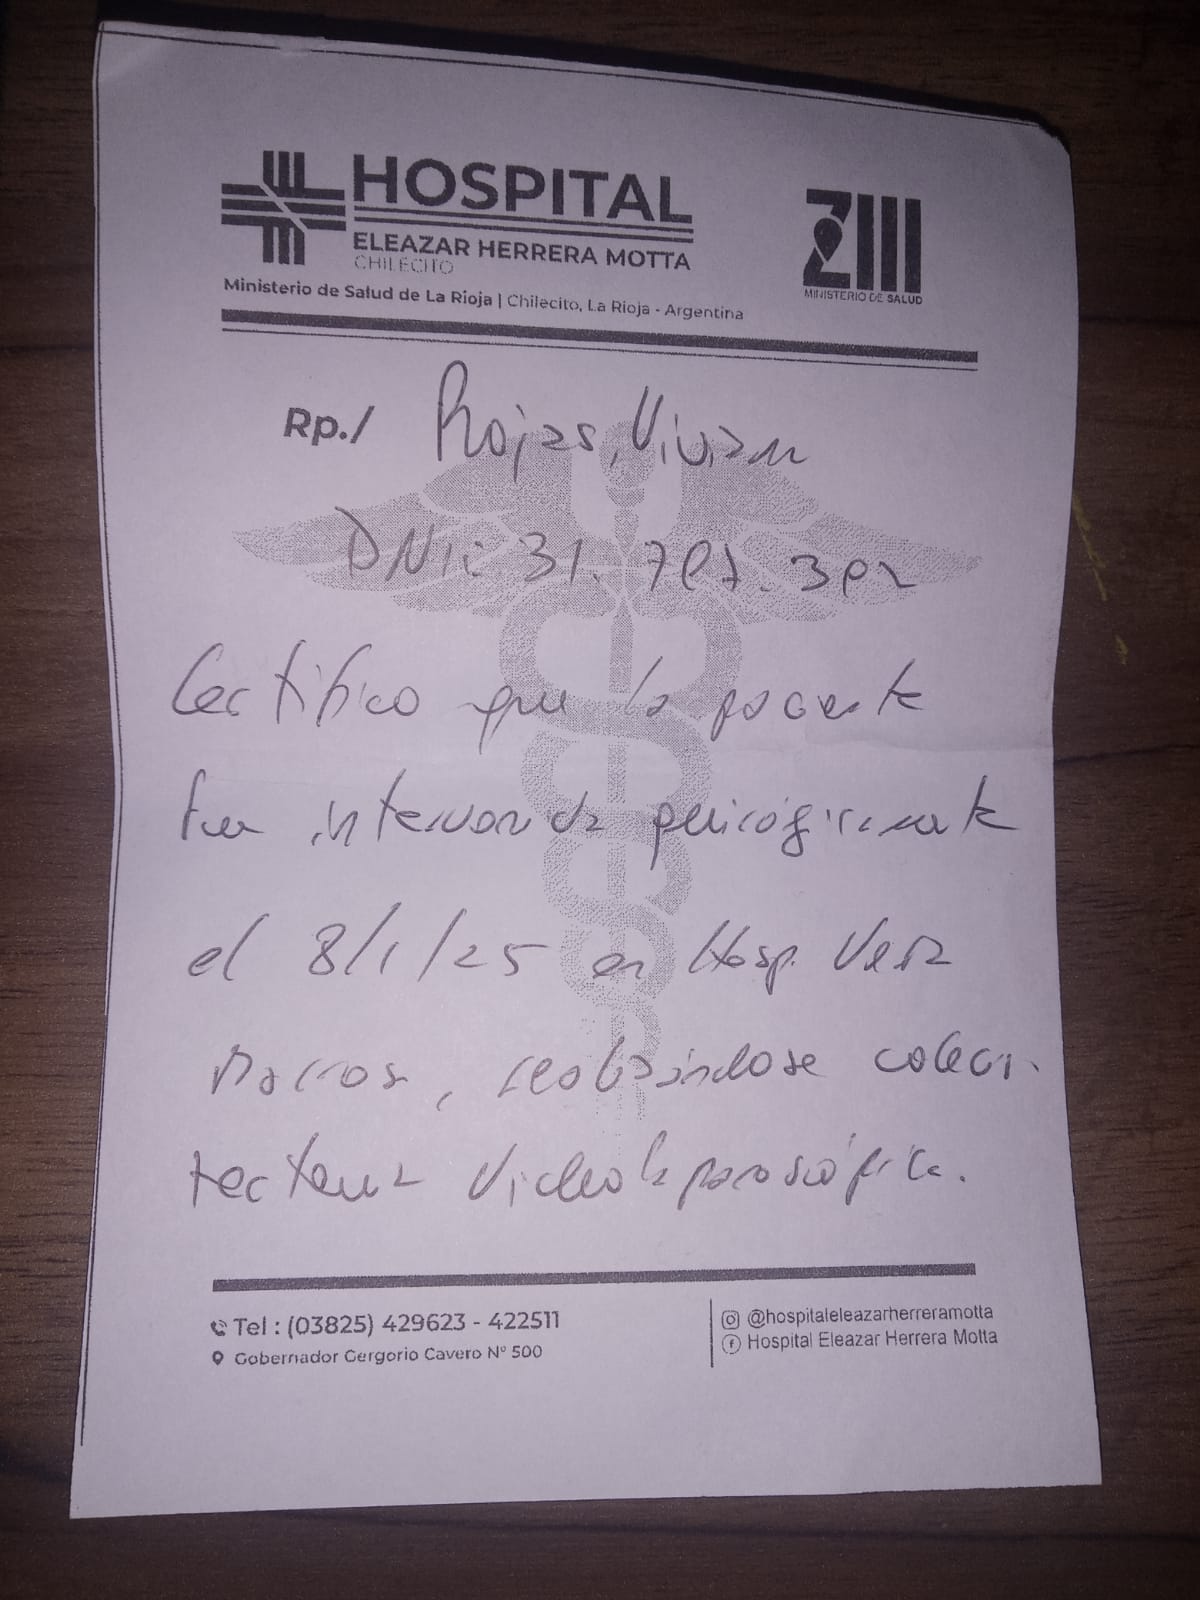 HOSPITAL
ELEAZAR HERRERA MOTTA
CHILECITO
Ministerio de Salud de La Rioja | Chilecito, La Rioja - Argentina
ZIII
MINISTERIO DE SALUD
Rp./ Rojas, Vivian
DNI: 31.
Certifico que la paciente
fue intervenida
el 8/1/25 en Hosp. Vera
Barros, realizándose coleci-
tectomia Videolaparoscópica.
Tel : (03825) 429623 - 422511
Gobernador Gergorio Cavero N° 500
@hospitaleleazarherreramotta
Hospital Eleazar Herrera Motta